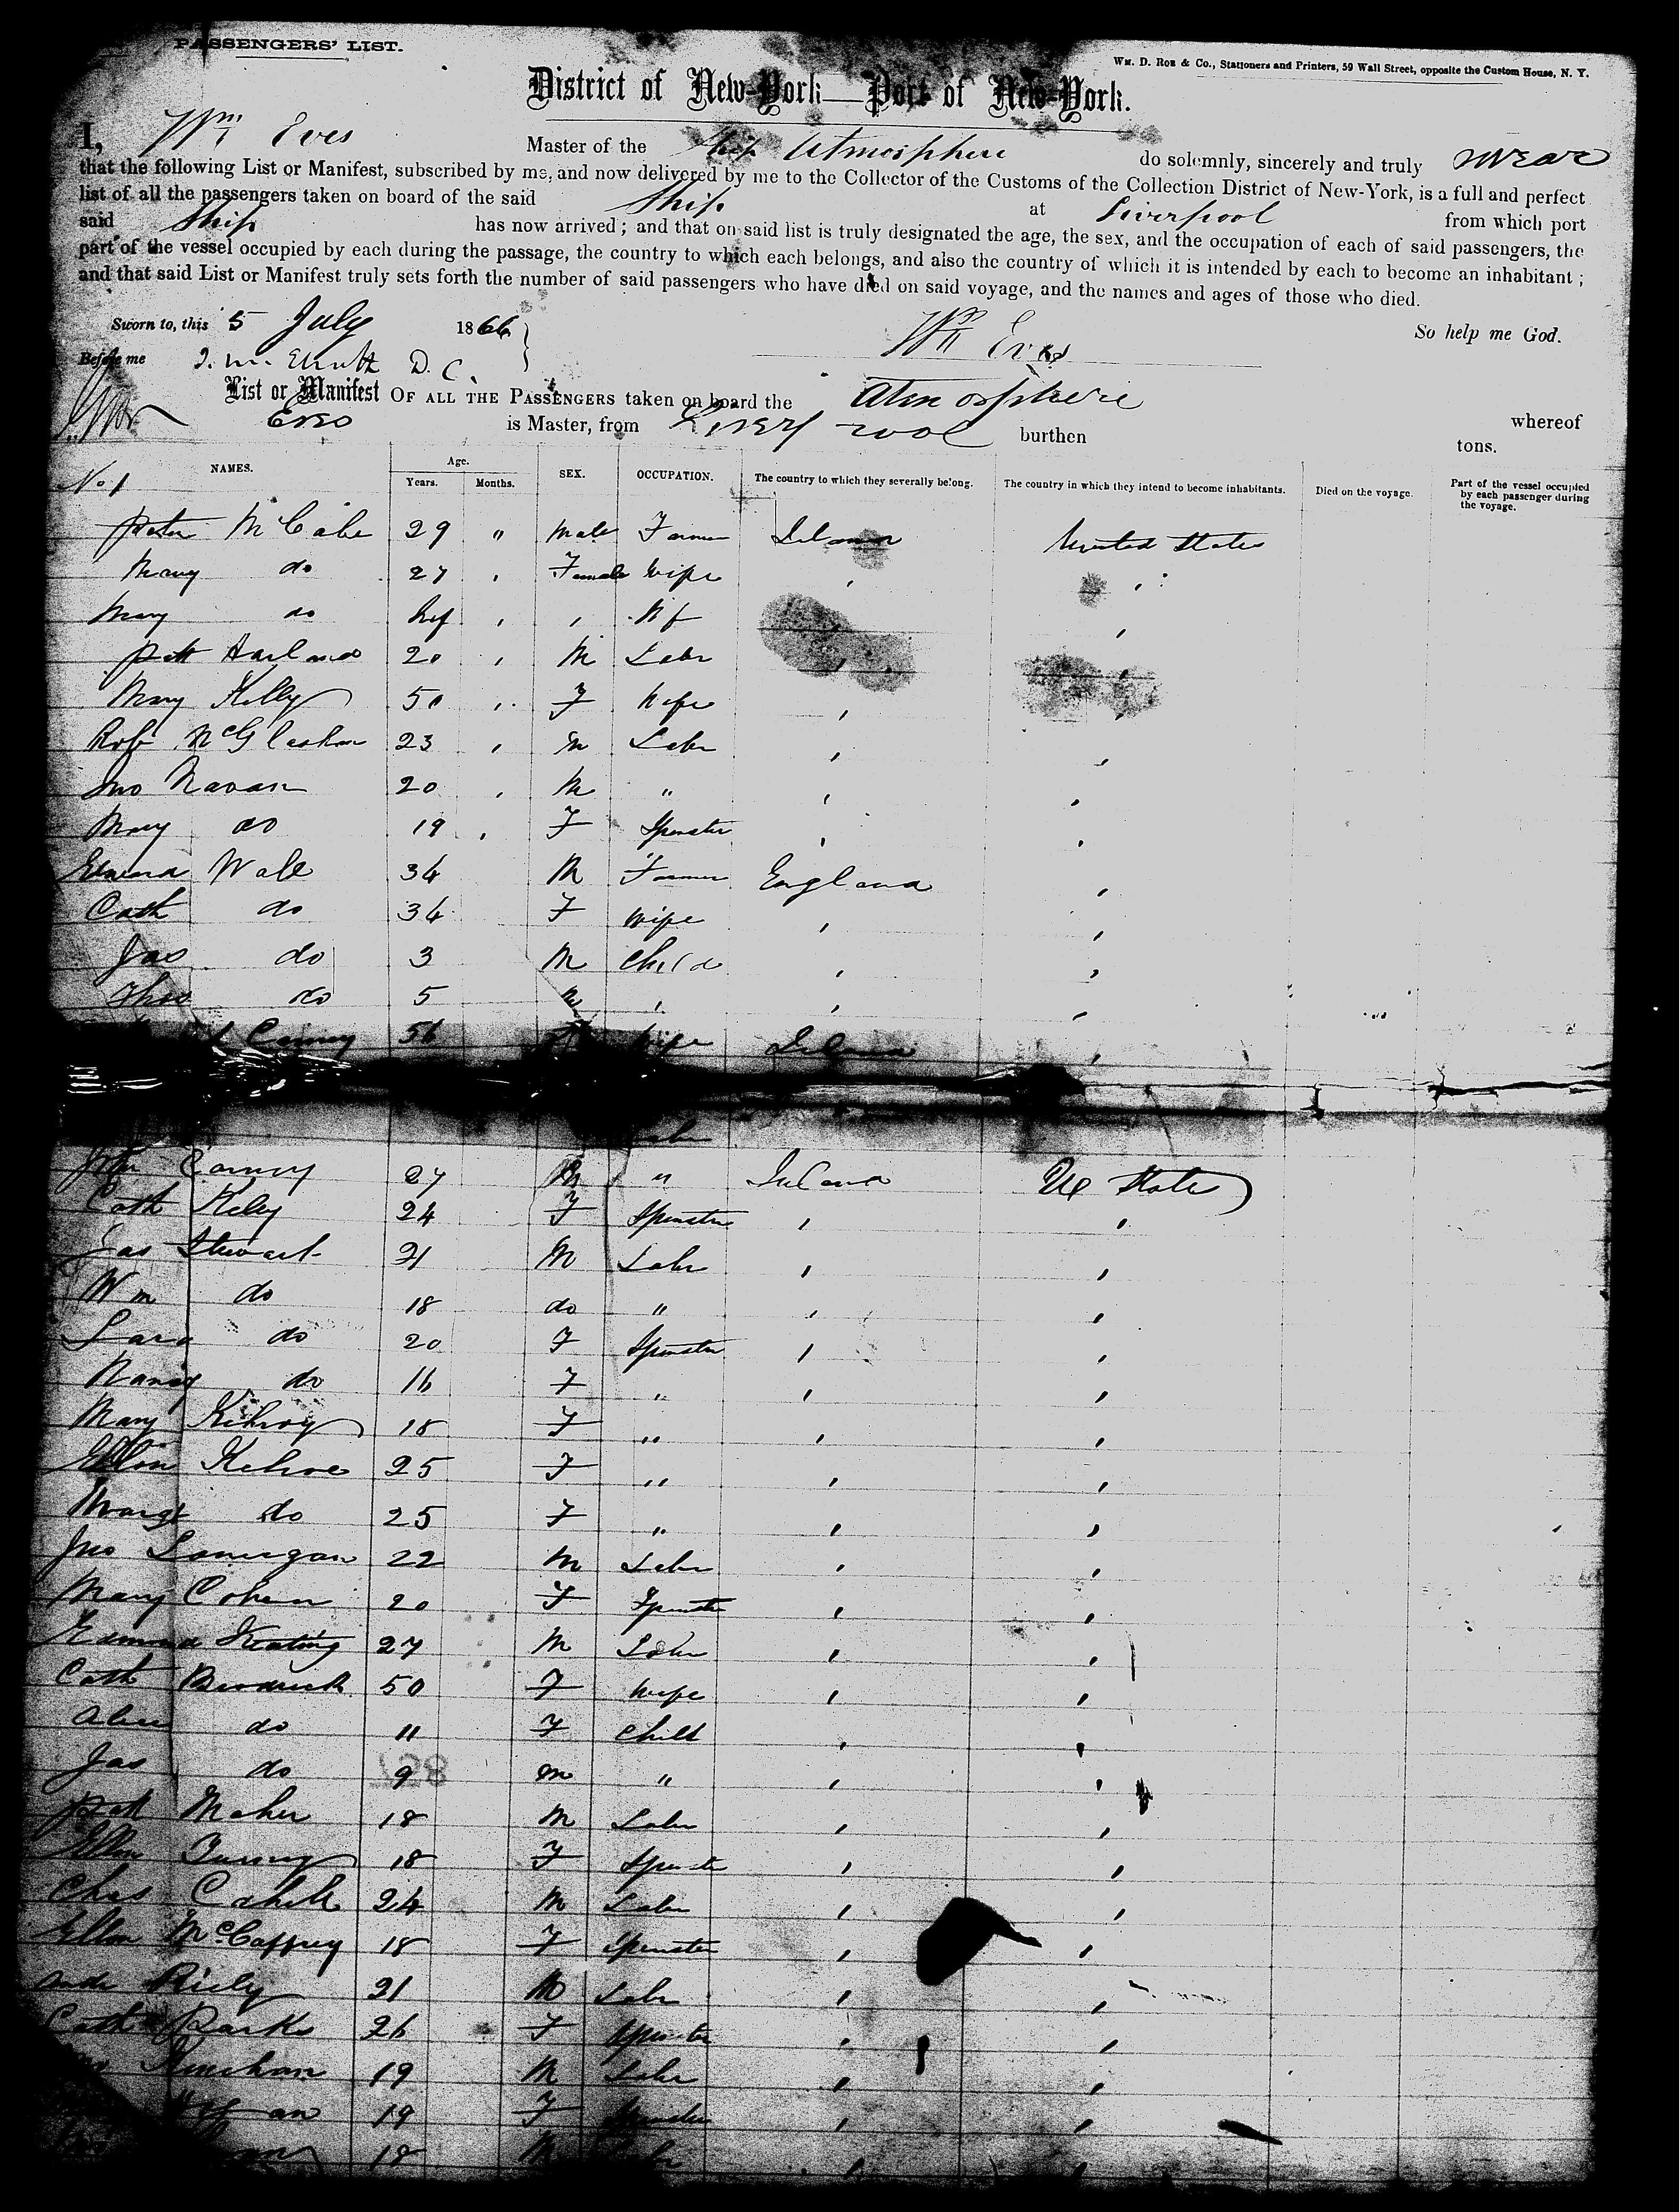 PASSENGERS' LIST.
Wm. D. Roe & Co., Stationers and Printers, 59 Wall Street, opposite the Custom House, N. Y.
District of New-York—Port of New-York.
I, Wm Eves Master of the Ship Atmosphere do solemnly, sincerely and truly swear
that the following List or Manifest, subscribed by me, and now delivered by me to the Collector of the Customs of the Collection District of New-York, is a full and perfect
list of all the passengers taken on board of the said Ship at Liverpool from which port
said Ship has now arrived; and that on said list is truly designated the age, the sex, and the occupation of each of said passengers, the
part of the vessel occupied by each during the passage, the country to which each belongs, and also the country of which it is intended by each to become an inhabitant;
and that said List or Manifest truly sets forth the number of said passengers who have died on said voyage, and the names and ages of those who died.
Sworn to, this 5 July 1866 So help me God.
Before me D. C. Wm Eves
List or Manifest OF ALL THE PASSENGERS taken on board the Atmosphere whereof
Eves is Master, from Liverpool burthen tons.
No 1 NAMES. Age. Years. Months. SEX. OCCUPATION. The country to which they severally belong. The country in which they intend to become inhabitants. Died on the voyage. Part of the vessel occupied by each passenger during the voyage.
Peter McCabe 29 " Male Farmer Ireland United States
Mary do 27 Female Wife
Mary do Inf
Patt 20 M Labr
Mary Kelly 50 F Wife
Robt McGlashan 23 M Labr
Jno Navan 20 M "
Mary do 19 F Spinster
Edward Wall 34 M Farmer England
Cath do 34 F Wife
Jas do 3 M Child
Thos do 5 M
56 Wife Ireland
Labr
Carney 27 M " Ireland Ud States
Cath Kiley 24 F Spinster
Jas Stewart 21 M Labr
Wm do 18 do "
Sara do 20 F Spinster
Nancy do 16 F "
Mary Kilroy 18 F "
Ellen Kehoe 25 F "
Margt do 25 F "
Jno Lonergan 22 M Labr
Mary Cohen 20 F Spinster
Edmond Keating 27 M Labr
Cath Brodrick 50 F Wife
Alice do 11 F Child
Jas do 9 M "
Patt Maher 18 M Labr
Ellen 18 F Spinster
Chas Cahill 24 M Labr
Ellen McCaffrey 18 F Spinster
Andw Riely 21 M Labr
Cath Parks 26 F Spinster
19 M Labr
19 F Spinster
18 M Labr